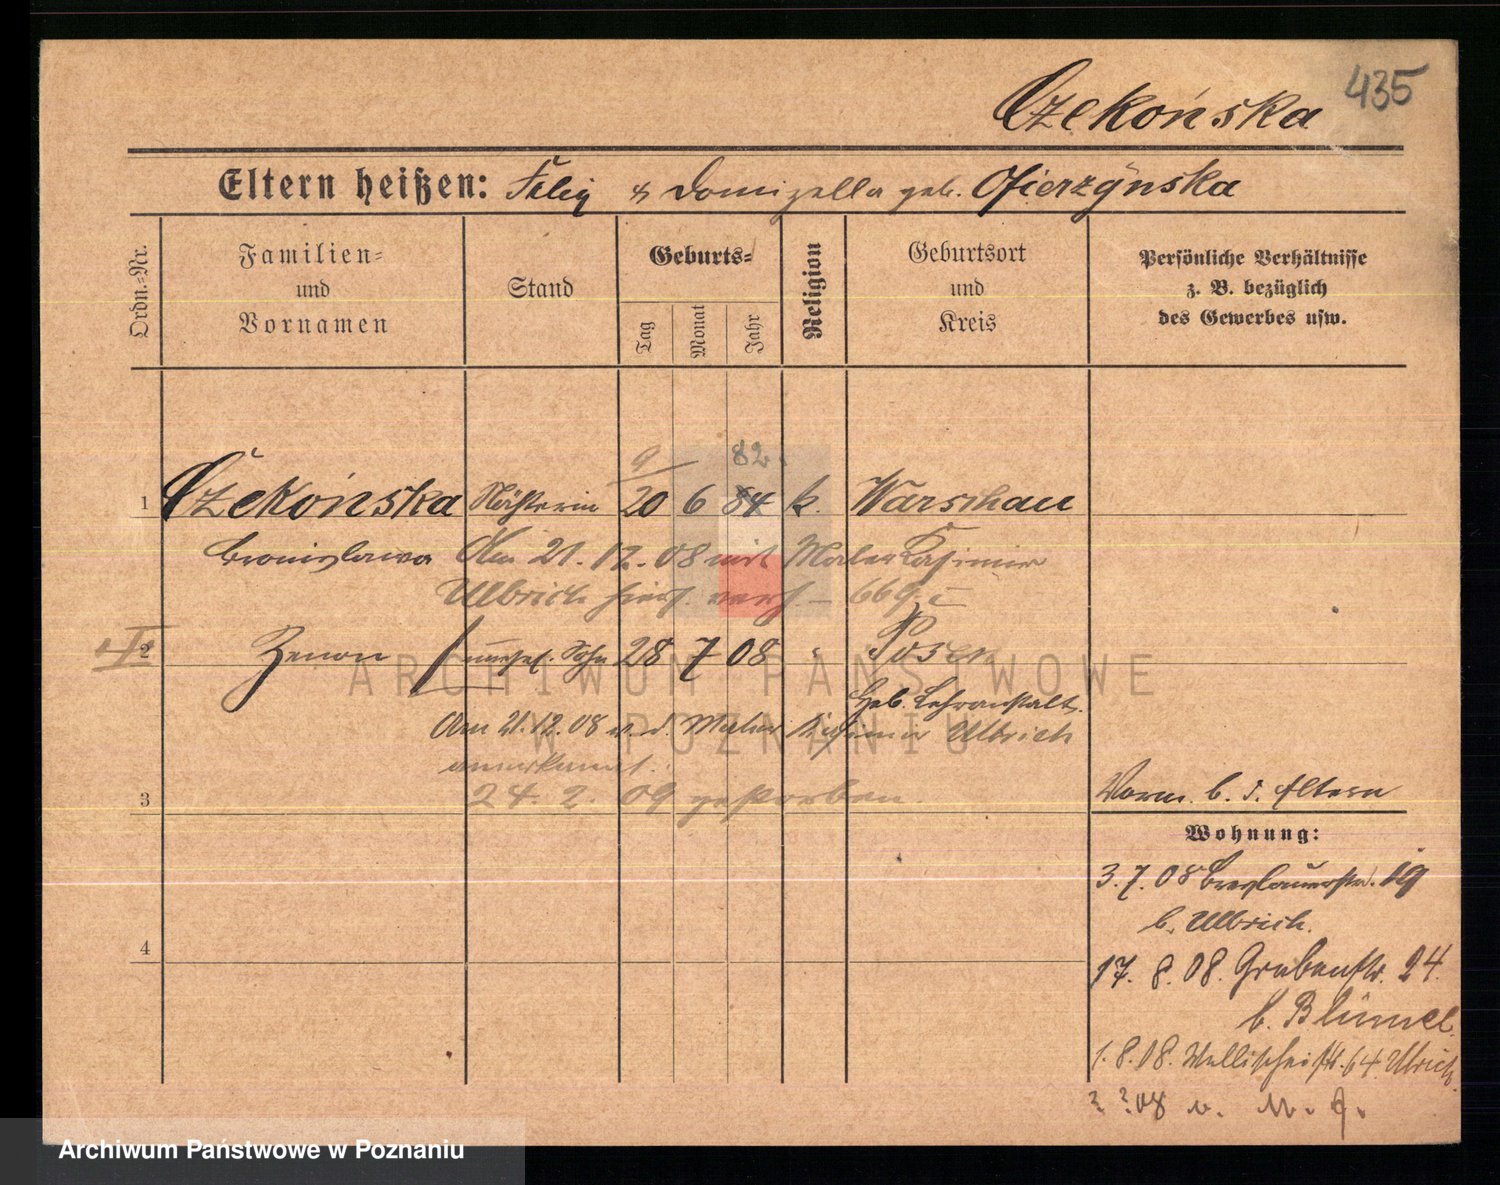 Czekońska 435
Eltern heißen: Felix & Domizella geb. Ofierzÿnska
Ordn.-Nr.
Familien-
und
Vornamen
Stand
Geburts-
Tag
Monat
Jahr
Religion
Geburtsort
und
Kreis
Persönliche Verhältnisse
z. B. bezüglich
des Gewerbes usw.
9 82.
1 Czekońska Nähterin 20 6 84 k. Warschau
Bronislawa Am 21.12.08 mit Maler Kasimir
Ulbrich hies. verh. – 669.
2 Zenon unehel. Sohn 28 7 08 " Posen
Heb. Lehranstalt.
Am 21.12.08 v. d. Maler Kasimir Ulbrich
anerkannt.
3 24. 2. 09 gestorben.
Vorm. b. d. Eltern
Wohnung:
3.7.08 Breslauerstr. 19
b. Ulbrich.
4
17. 8. 08. Grabenstr. 24.
b. Blümel.
1.8.08. Wallischeistr. 64. Ulbrich
08 v. M. J.
ARCHIWUM PAŃSTWOWE
W POZNANIU
Archiwum Państwowe w Poznaniu